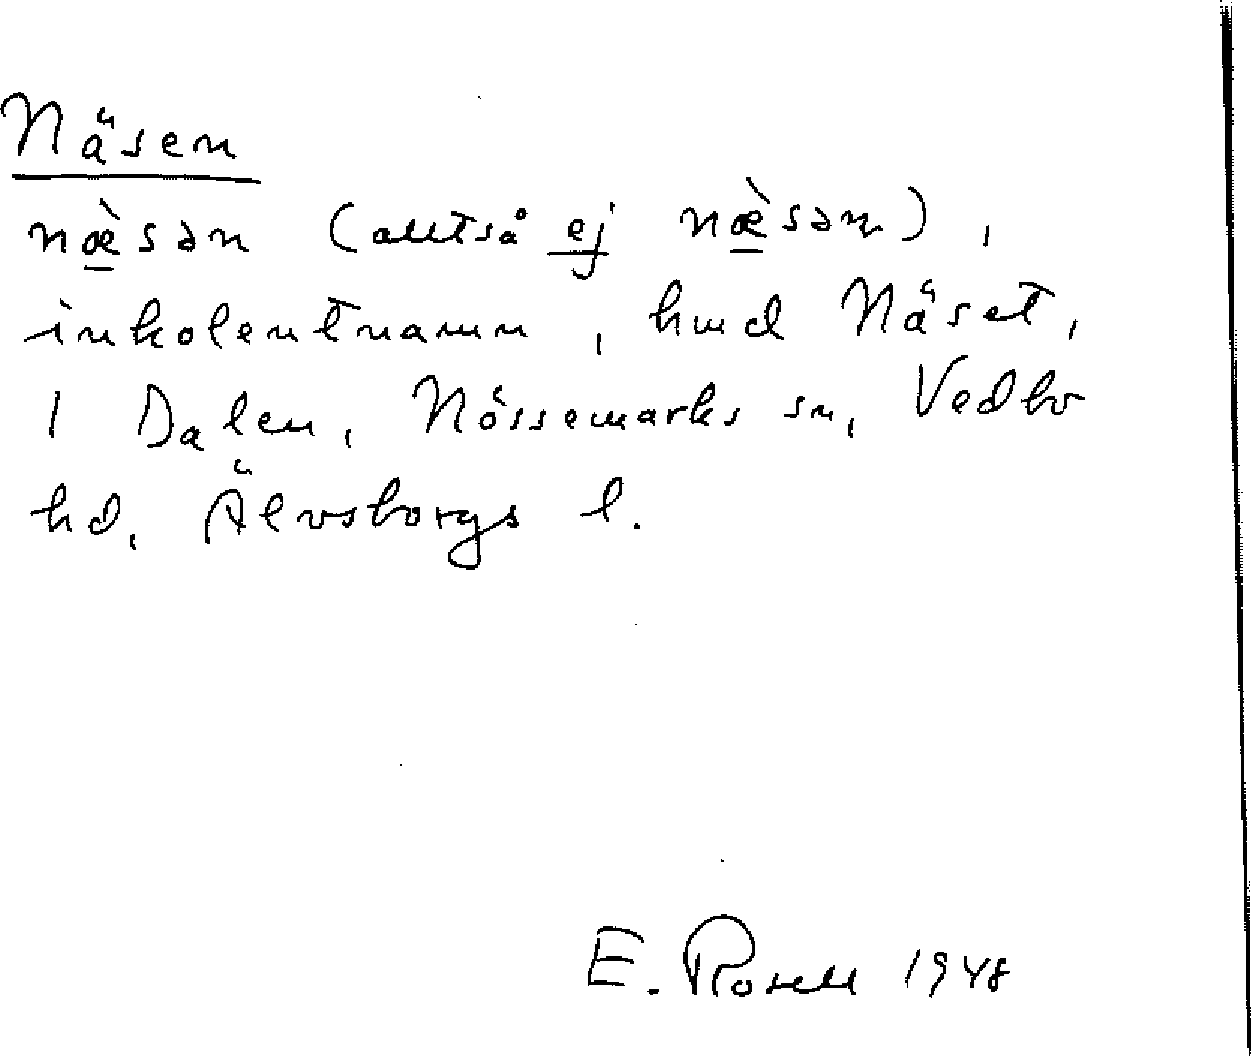 Näsen
næ̀sən (alltså ej næ̀sən),
inkolentnamn, hmd Näset,
1 Dalen, Nössemarks sn, Vedbo
hd, Älvsborgs l.
E. Rosell 1948